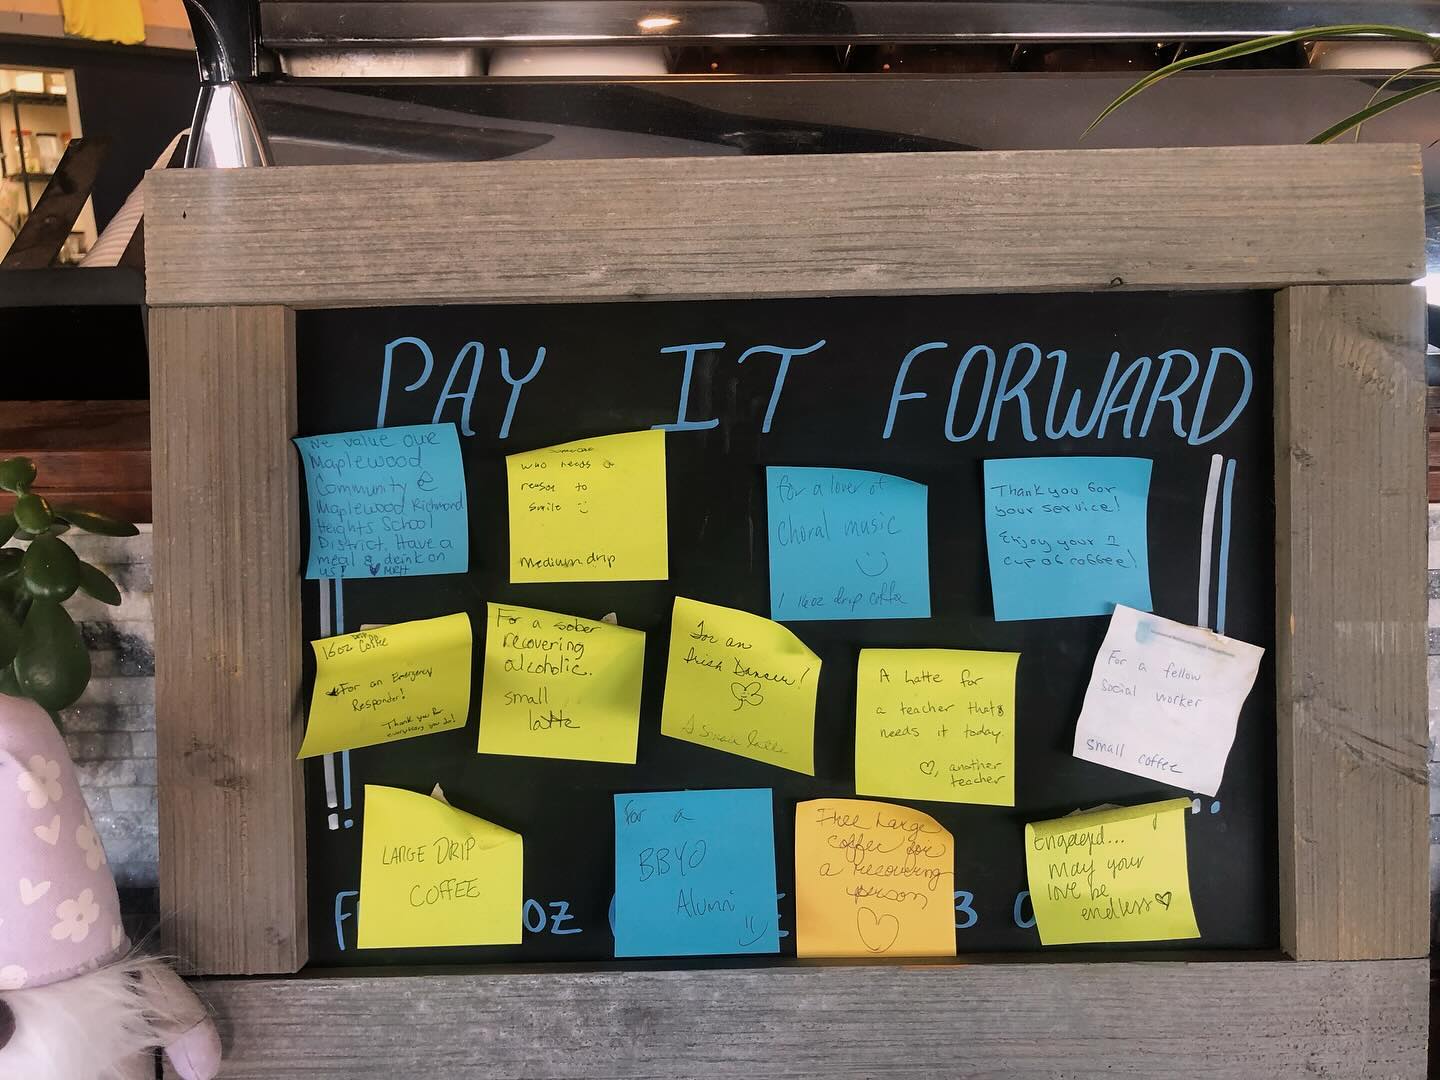 PAY IT FORWARD
We value our
Maplewood
Community &
Maplewood Richmond
Heights School
District. Have a
meal & drink on
us! MRH
Someone
who needs a
reason to
smile
Medium drip
for a lover of
Choral music
1 16oz drip coffee
Thank you for
your service!
Enjoy your
cup of coffee!
16oz Coffee
For an Emergency
Responder!
Thank you for
everything you do!
For a sober
recovering
alcoholic.
small
latte
For an
Irish Dancer!
A Small latte
A latte for
a teacher that
needs it today.
another
teacher
For a fellow
social worker
small coffee
LARGE DRIP
COFFEE
for a
BBYO
Alumni
Free Large
coffee for
a recovering
person
Engaged...
may your
love be
endless
F OZ E 3 O